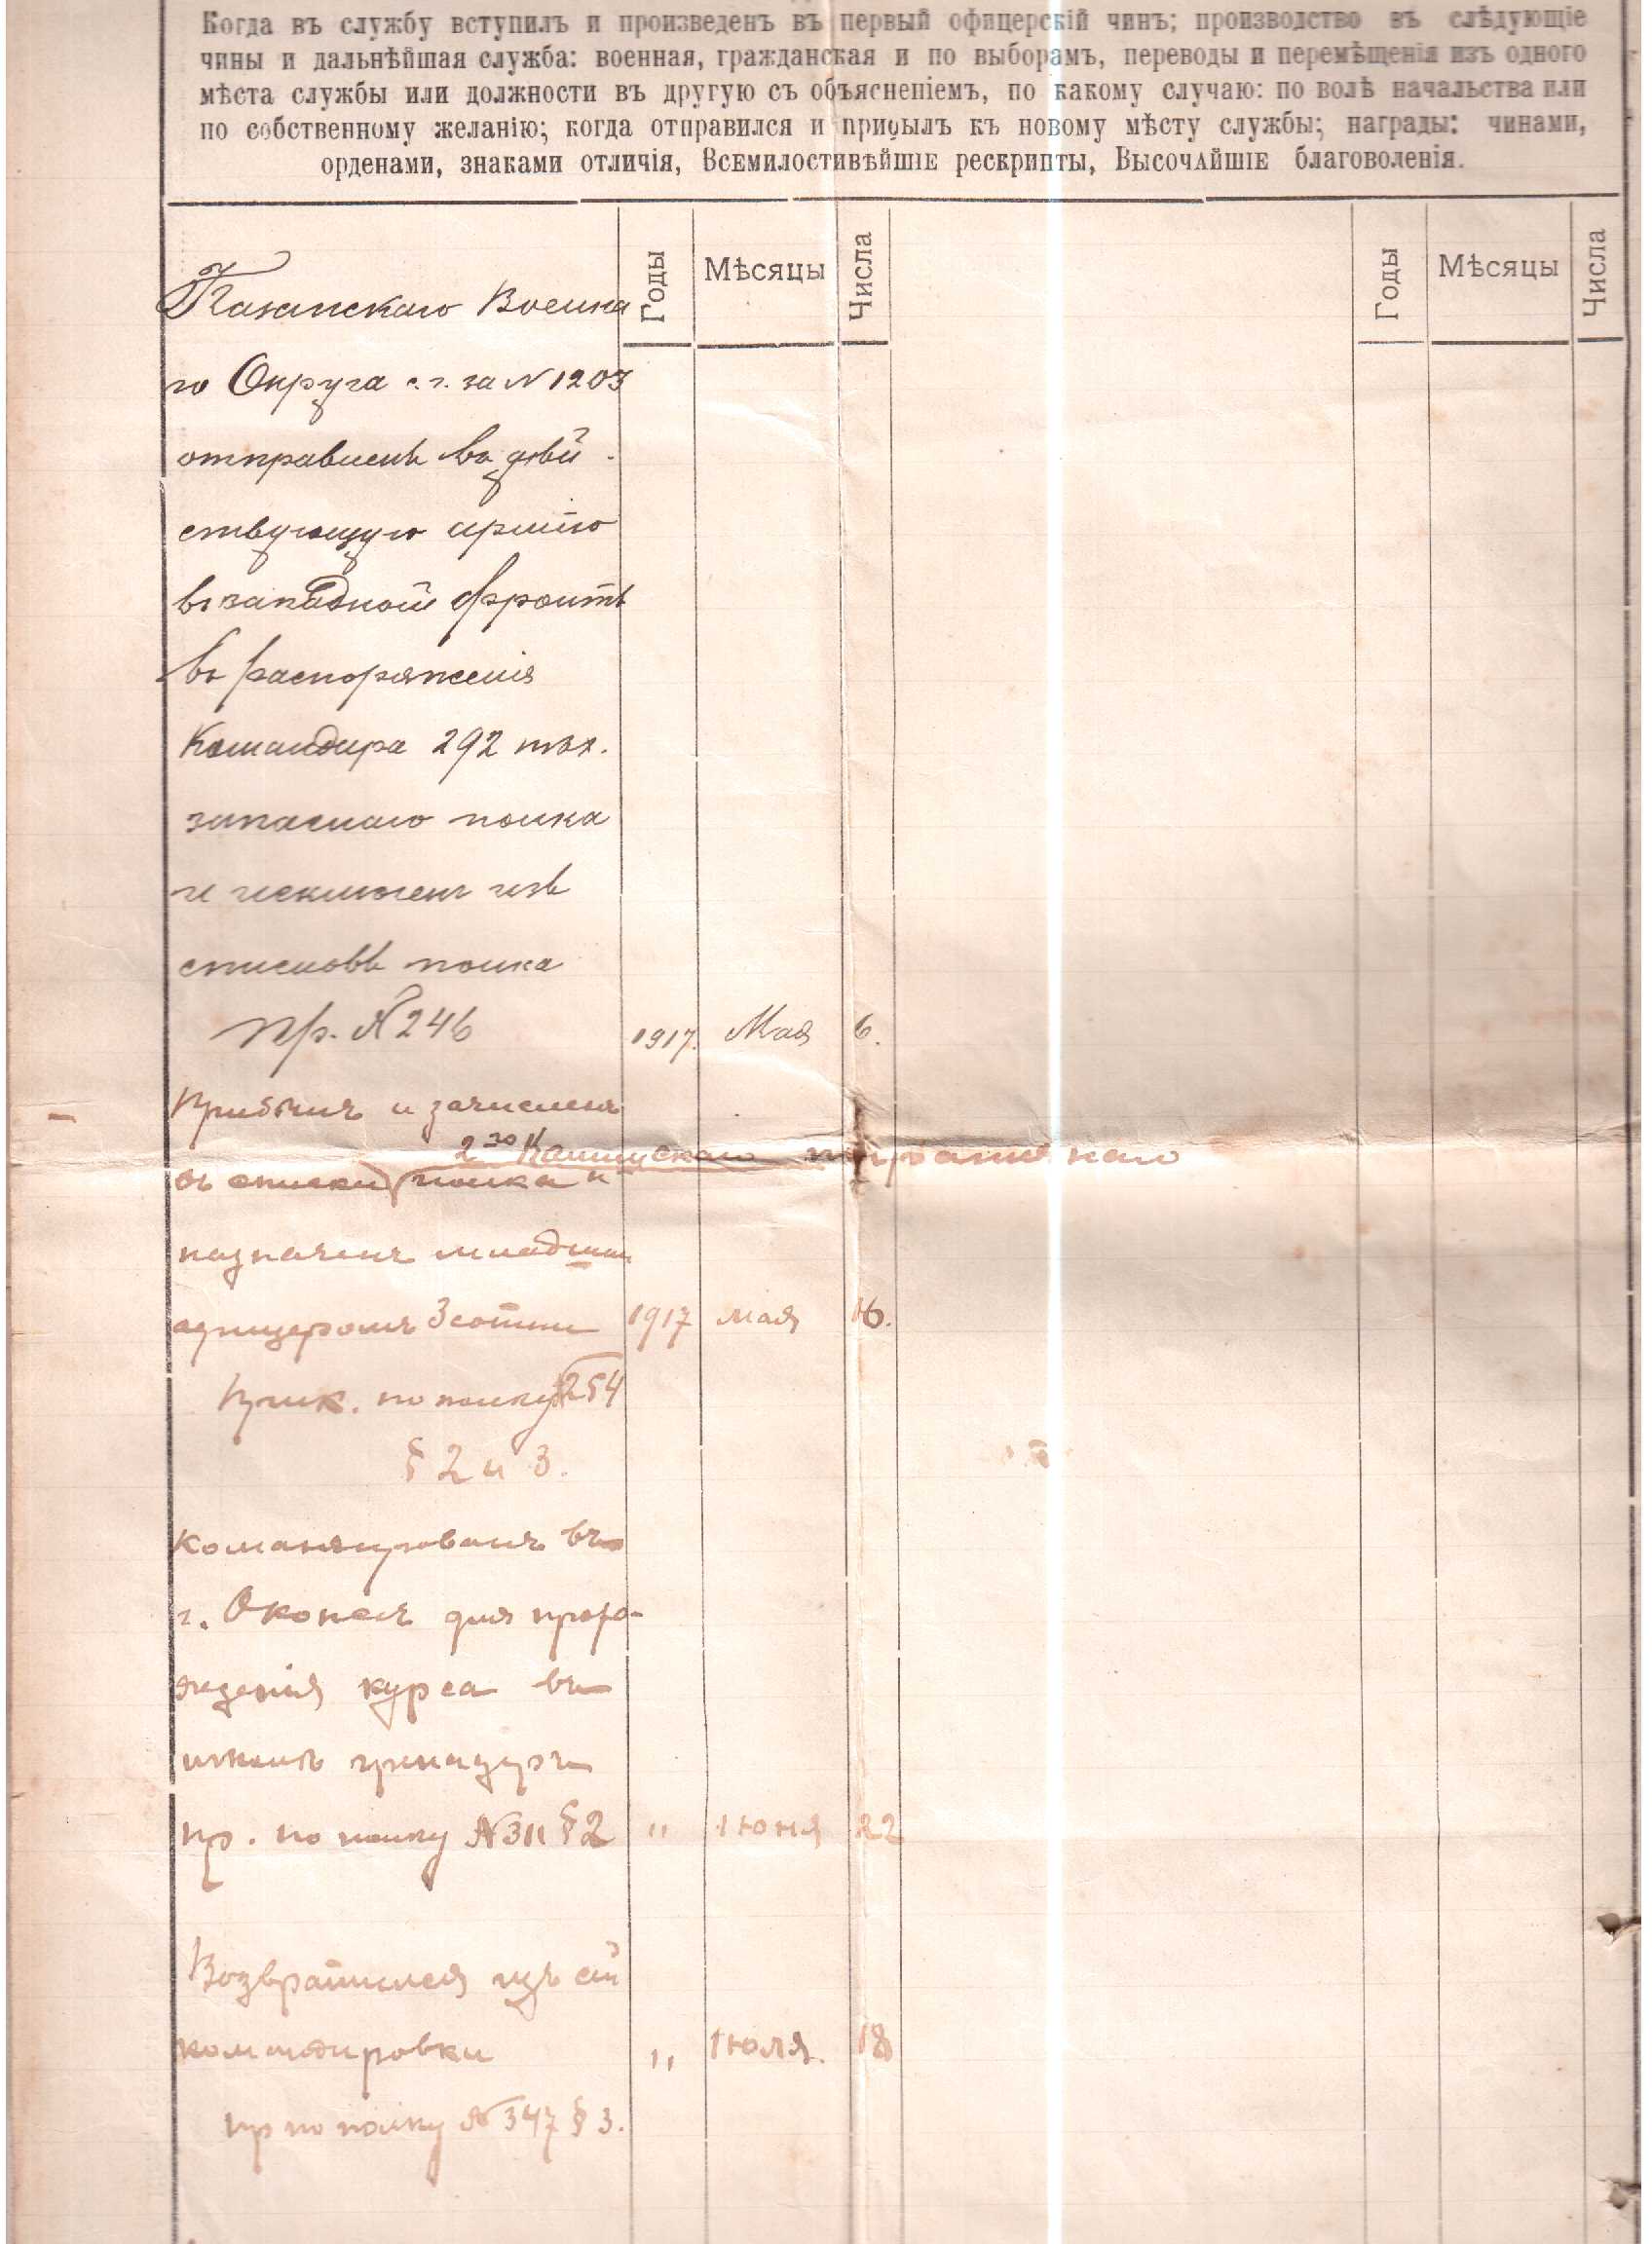 Когда въ службу вступилъ и произведенъ въ первый офицерскій чинъ; производство въ слѣдующіе
чины и дальнѣйшая служба: военная, гражданская и по выборамъ, переводы и перемѣщенія изъ одного
мѣста службы или должности въ другую съ объясненіемъ, по какому случаю: по волѣ начальства или
по собственному желанію; когда отправился и прибылъ къ новому мѣсту службы; награды: чинами,
орденами, знаками отличія, Всемилостивѣйшіе рескрипты, Высочайшіе благоволенія.
Годы Мѣсяцы Числа Годы Мѣсяцы Числа
Казанскаго Военна
го Округа с.г. за N 1203
отправленъ въ дѣй
ствующую армію
въ западной фронтъ
въ распоряженія
Командира 292 пѣх.
запаснаго полка
и исключенъ изъ
списковъ полка
пр. № 246 1917. Мая 6.
Прибылъ и зачисленъ
2го
въ списки полка и
назначенъ младшим
офицеромъ 3 сотни 1917 мая 16.
Прик. по полку № 254
§ 2 и 3.
Командированъ въ
г. для прохо-
жденія курса въ
школѣ гренадеръ
пр. по полку № 311 § 2 " Іюня 22
Возвратился изъ сей
командировки " Іюля. 18
пр по полку № 347 § 3.